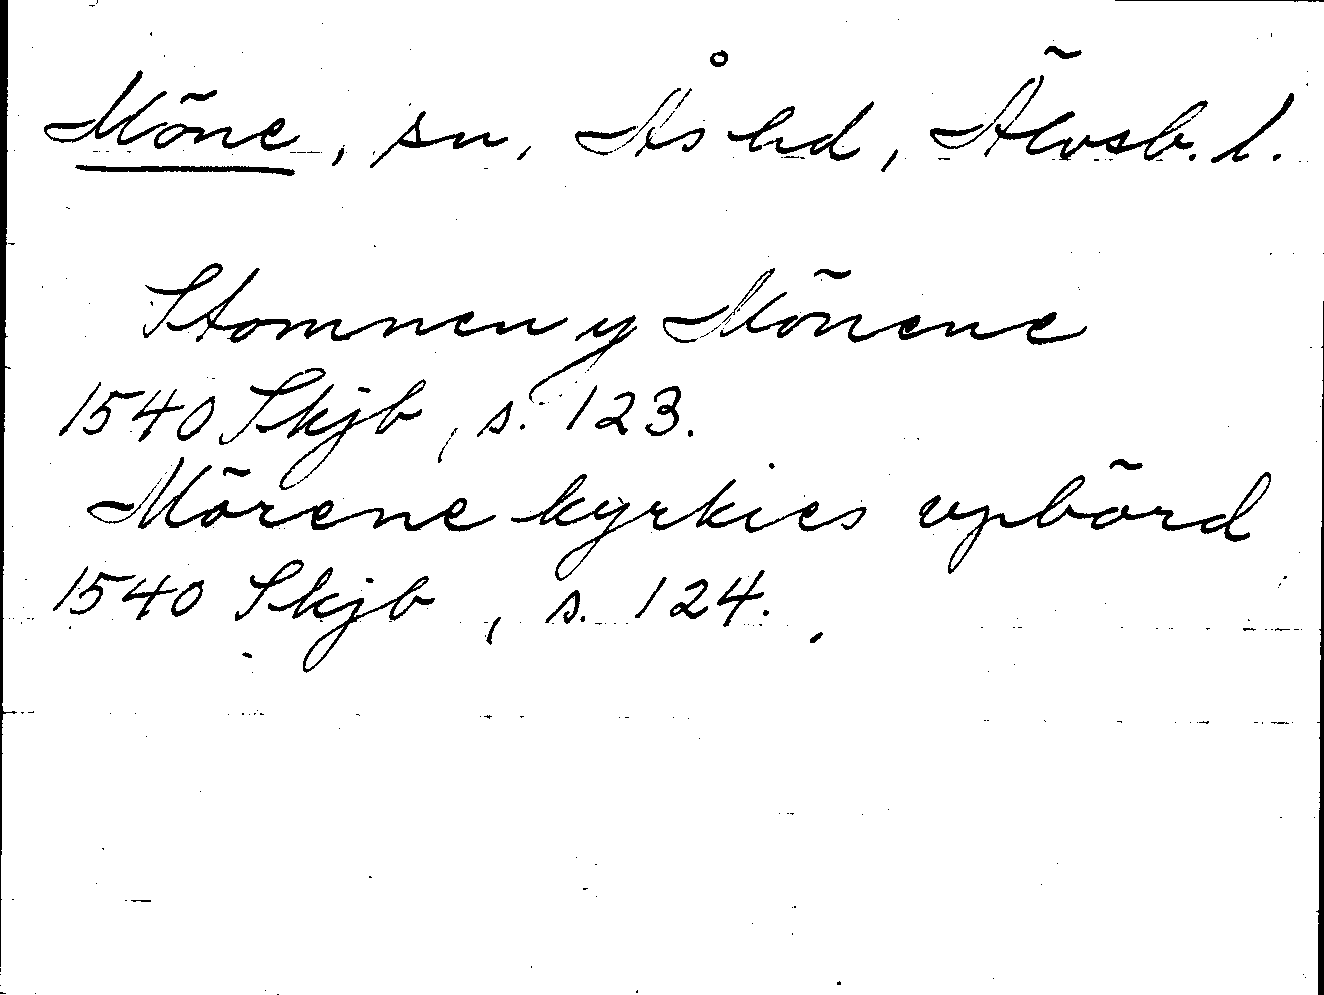 Möne, sn, Ås hd, Älvsb. l.
Stomnen y Mönene
1540 Skjb, s. 123.
Mörene kyrkies vpbörd
1540 Skjb, s. 124.